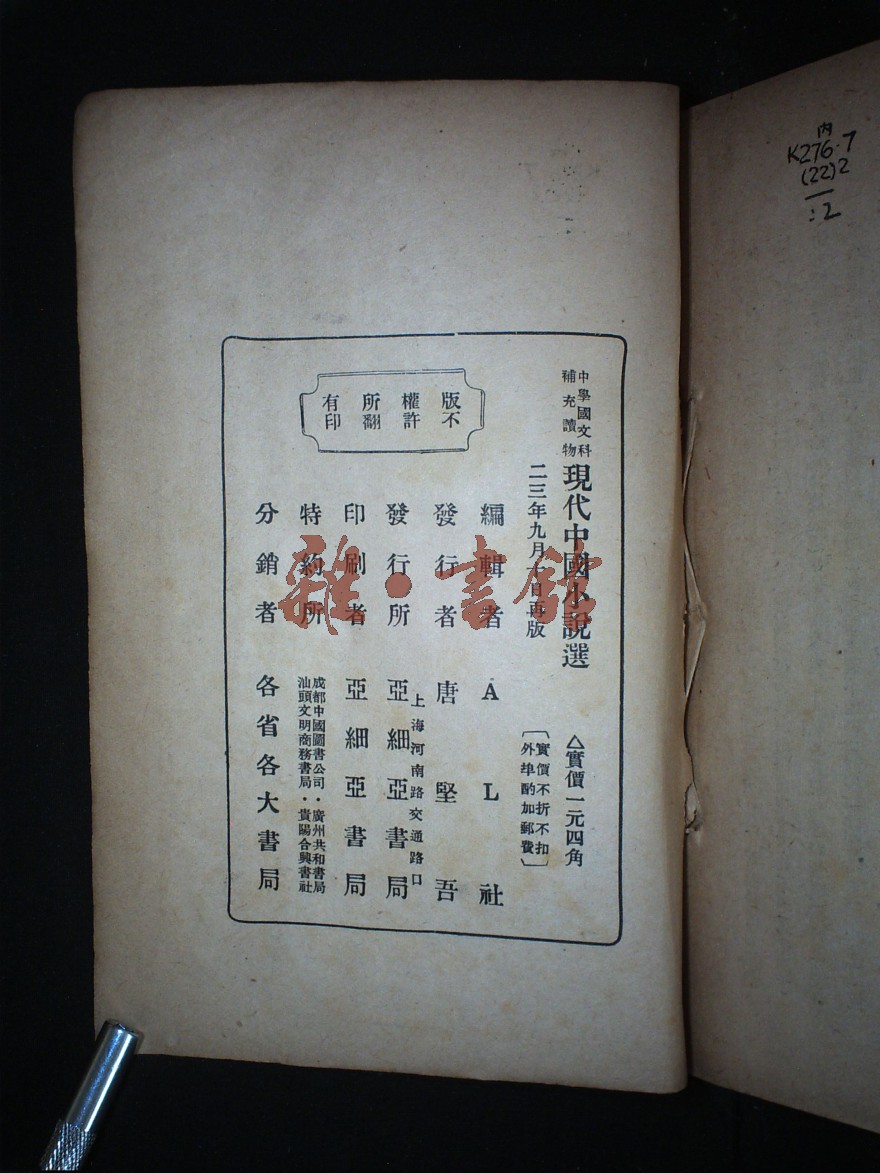 中學國文科
補充讀物
現代中國小說選
△實價一元四角
二三年九月十日再版
〔實價不折不扣
外埠酌加郵費〕
版權所有
不許翻印
編輯者 A L 社
發行者 唐堅吾
上海河南路交通路口
發行所 亞細亞書局
印刷者 亞細亞書局
特約所
成都中國圖書公司·廣州共和書局
汕頭文明商務書局·貴陽合興書社
分銷者 各省各大書局
雜·書館
內
K276.7
(22)2
:2